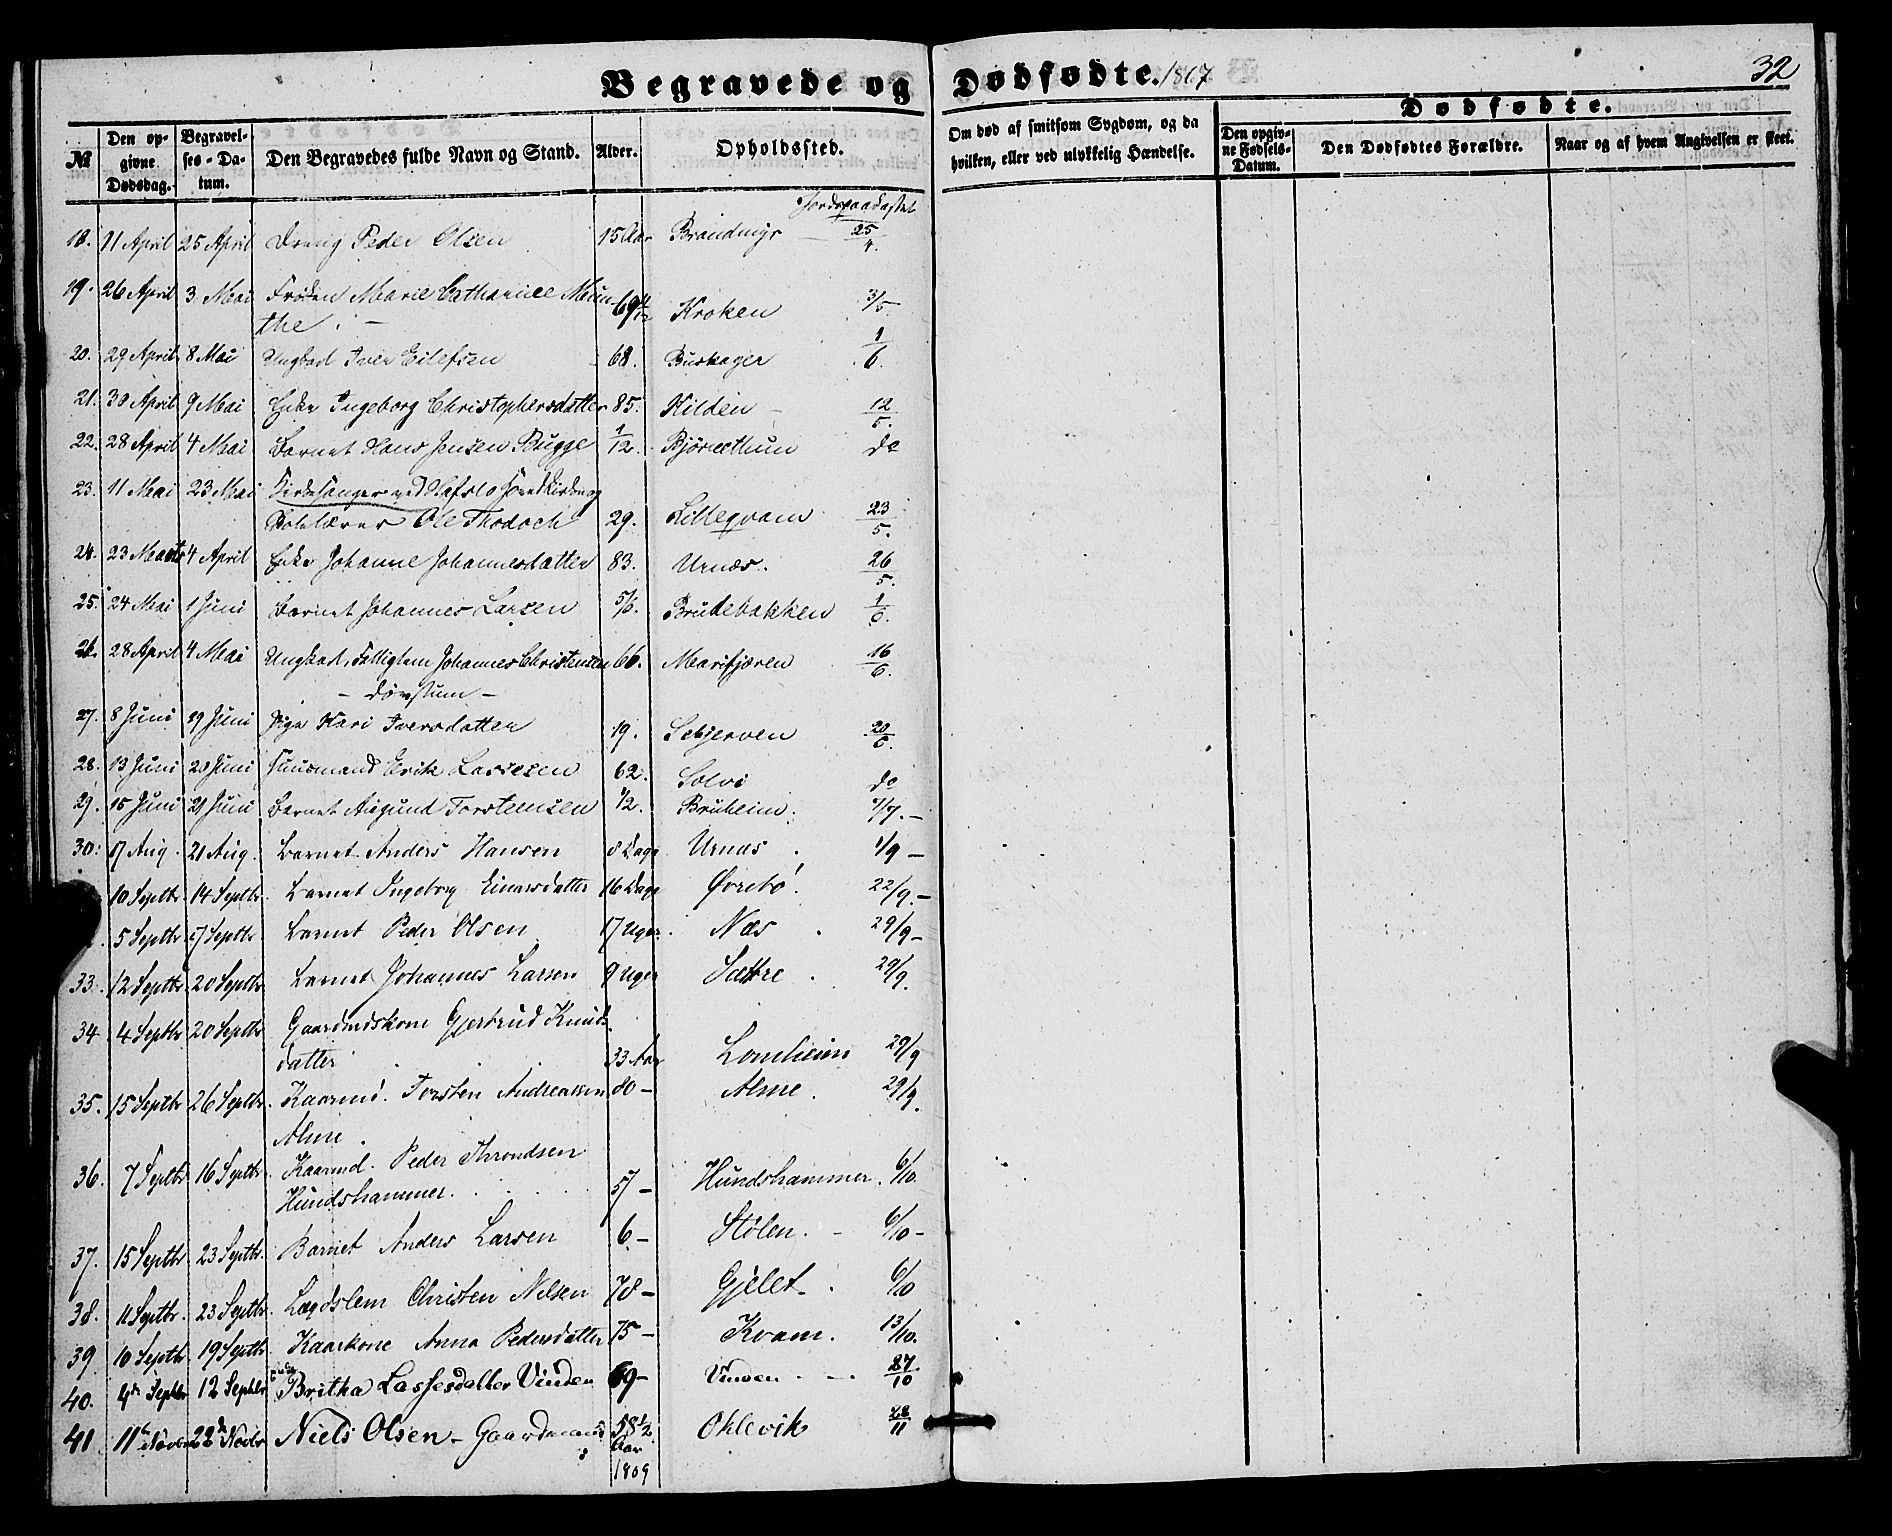 Begravede og Dødfødte. 1867
32
No
Den opgivne Dødsdag.
Begravelses-Datum.
Den Begravedes fulde Navn og Stand.
Alder.
Opholdssted.
Om død af smitsom Sygdom, og da hvilken, eller ved ulykkelig Hændelse.
Dødfødte.
Den opgivne Fødsels-Datum.
Den Dødfødtes Forældre.
Naar og af hvem Angivelsen er skeet.
Jordspaadastet
18. 11 April 25 April Dreng Peder Olsen 15 Aar Brandmyr 25/4.
19. 26 April 3 Mai Frøken Marie Catharine Mun
the. 69 Kroken 3/5
20. 29 April 8 Mai Ungkarl Iver Eilefsen 68. Buskager 1/6.
21. 30 April 9 Mai Enke Ingeborg Christophersdatter 85. Kilden 12/5.
22. 28 April 4 Mai Barnet Hans Jensen Bugge 1/12. do
23. 11 Mai 23 Mai Kirkesanger ved Hafslo Hovedkirke og
Skolelærer Ole 29. Lilleqvam 23/5.
24. 23 Marts 4 April Enke Johanne Johannesdatter 83. Urnæs. 26/5.
25. 24 Mai 1 Juni Barnet Johannes Larsen 5/6. Brudebakken 1/6.
26. 28 April 4 Mai Ungkarl, Fattiglem Johannes Christensen 66. Marifjæren 16/6.
- døvstum -
27. 8 Juni 19 Juni Pige Kari Iversdatter 19. Skjerven 20/6.
28. 13 Juni 20 Juni Huusmand Erik Lassesen 62. Solvi do
29. 15 Juni 20 Juni Barnet Torsteinsen 1/2. Bruheim. 7/7. -
30. 17 Aug. 21 Aug. Barnet Anders Hansen 8 Dage Urnæs 1/9 -
10 Septbr. 14 Septbr. Barnet Ingeborg Einarsdatter 16 Dage Øvrebø. 22/9. -
5 Septbr. 17 Septbr. Barnet Peder Olsen 17 Uger. Næs 29/9 -
33. 12 Septbr. 20 Septbr. Barnet Johannes Larsen 9 Uger Sættre. 29/9.
34 4 Septbr. 20 Septbr. Gaardmdskone Gjertrud Knuds
datter 33 Aar Lomheim 29/9
35. 15 Septbr. 26 Septbr. Kaarmd. Torsten Andreassen 80 - Alme. 29/9.
Alme.
36. 7 Septbr. 16 Septbr. Kaarmd. Peder Throndsen
Hundshammer. 57 - Hundshammer. 6/10.
37. 15 Septbr. 23 Septbr. Barnet Anders Larsen 6 - Stølen. 6/10 -
38. 11 Septbr. 23 Septbr. Lægdslem Christen Nilsen 78 - Gjelet. 6/10
39 10 Septbr. 19 Septbr. Kaarkone Anna Pedersdatter 75 - Kvam. 13/10.
40. 4de Septbr 12 Septbr Britha Lassesdatter Vinden 69 - Vinden 27/10
41 11te Novbr 22de Novbr Niels Olsen - Gaardmand 58 1/2 Aar 1809 Ohlevik 28/11